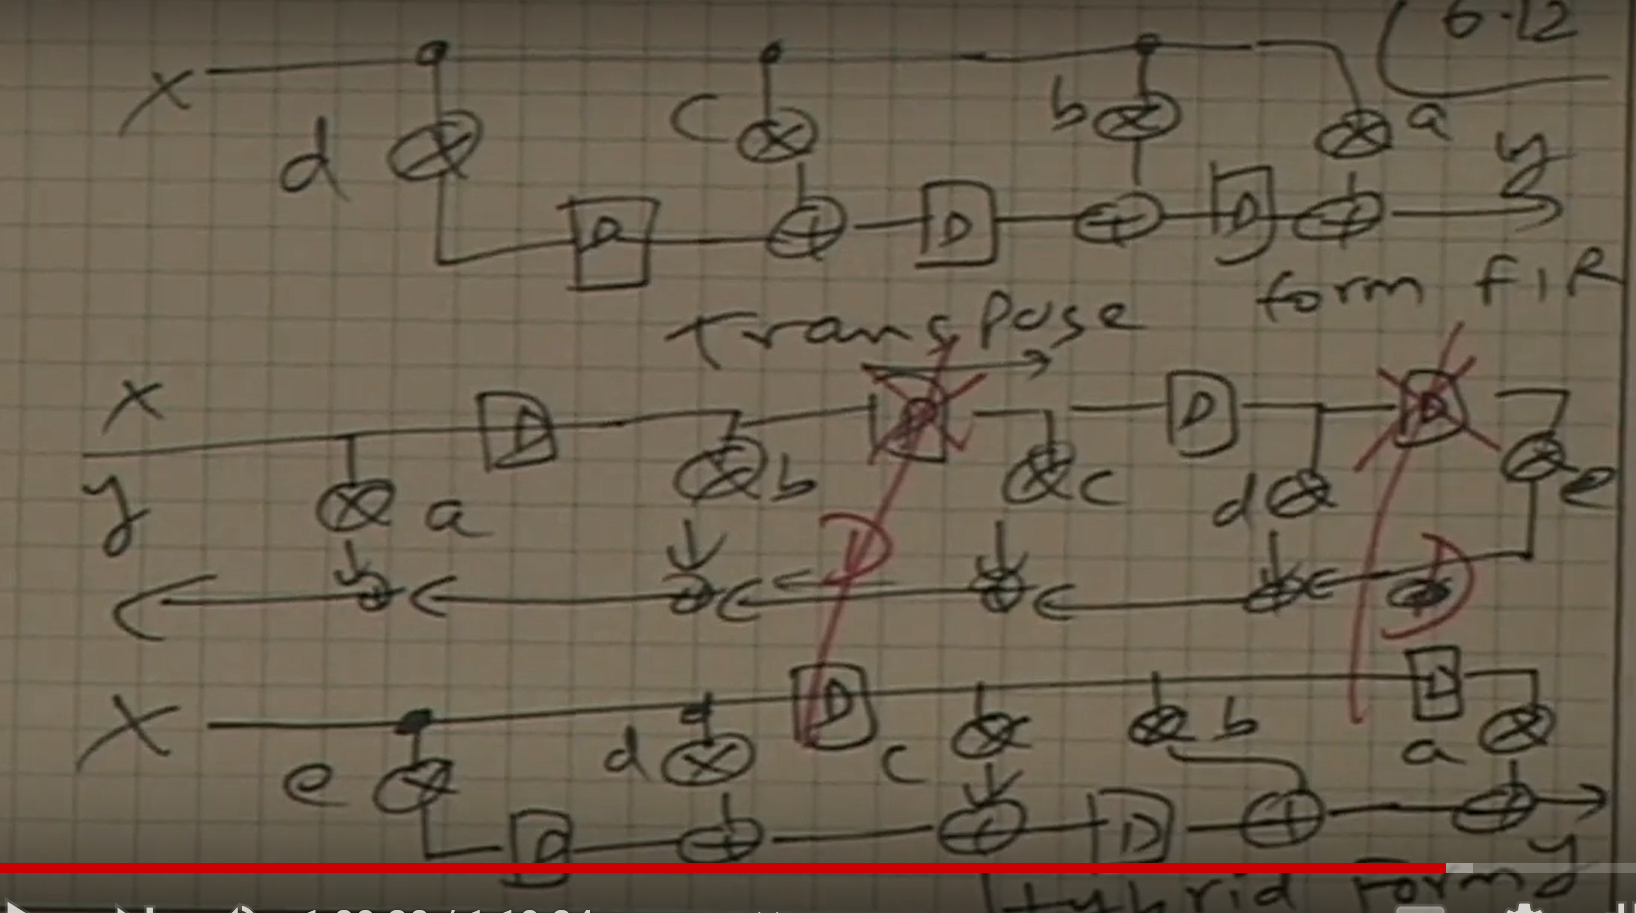 6-12
x
d
c
b
a
y
D
D
D
Transpose form FIR
x
D
D
D
D
y
a
b
c
d
e
D
D
X
D
D
e
d
c
b
a
D
D
y
Hybrid Form